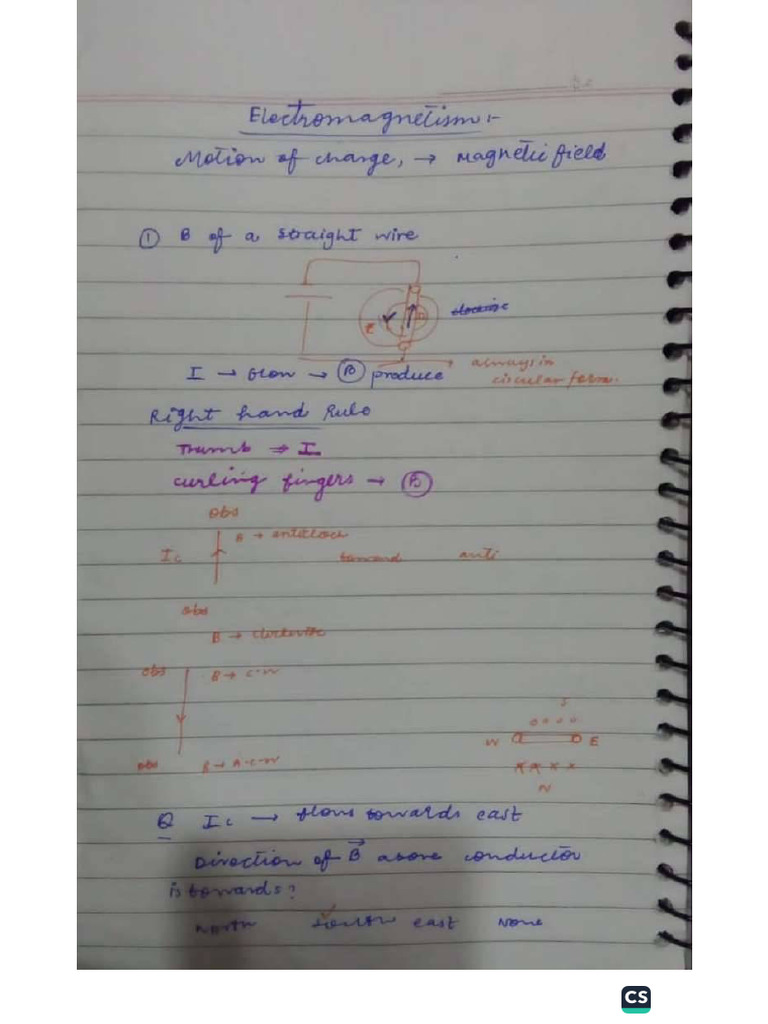 Electromagnetism:-
Motion of charge, → Magnetic field
① B of a straight wire
clockwise
always in
I → flow → Ⓑ produce
circular form.
Right hand Rule
Thumb ⇒ I
curling fingers → Ⓑ
obs
B → anticlock
Ic toward anti
obs
B → clockwise
obs B → C-W
obs B → A-C-W
S
W E
N
Q Ic → flows towards east
Direction of B⃗ above conductor
is towards?
North south east None
CS